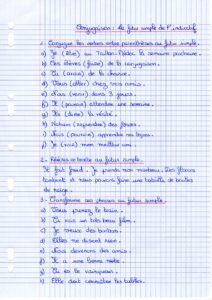 Conjugaison : Le futur simple de l'indicatif
1. Conjugue les verbes entre parenthèses au futur simple.
a) Je (être) au Tsilan. la semaine prochaine.
b) Les élèves (faire) de la conjugaison.
c) Tu (avoir) de la chance.
d) Vous (aller) chez vos amis.
e) Nous (venir) dans 3 jours.
f) Il (pouvoir) attendre une semaine.
g) Ils (dire) la vérité.
h) (reprendre) des forces.
i) Nous (pouvoir) apprendre nos leçons.
j) Je (voir) mon meilleur ami.
2. Réécris le texte au futur simple.
Il fait froid. Je prends mon manteau. Des flocons
tombent et nous pouvons faire une bataille de boules
de neige.
3. Transforme ces phrases au futur simple.
a) Vous prenez le train.
b) Tu vois un très beau film.
c) Je veux des bonbons.
d) Elles ne disent rien.
e) Nous devenons des amis.
f) Il a une bonne note.
g) Tu es le vainqueur.
h) Elle doit connaître les tables.